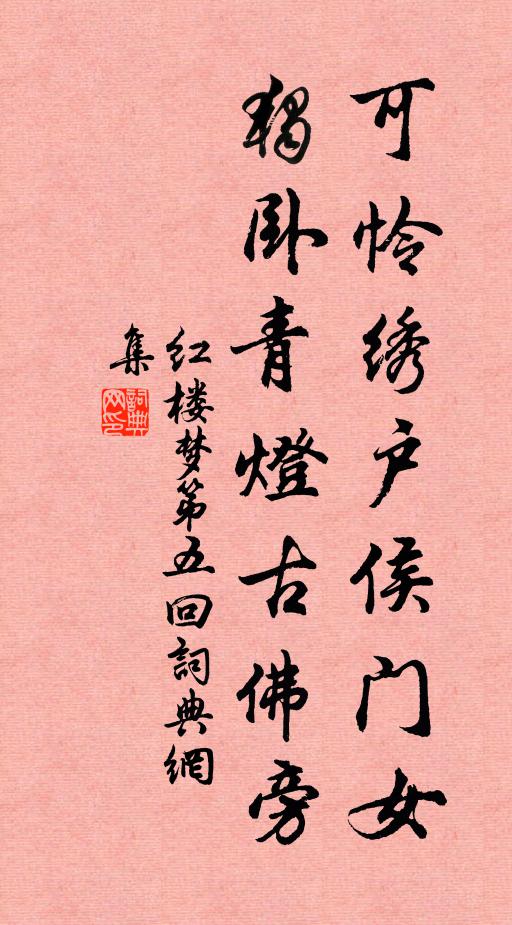 可怜绣户侯门女
独卧青燈古佛旁
红楼梦第五回詞典網
集
詞典
网印